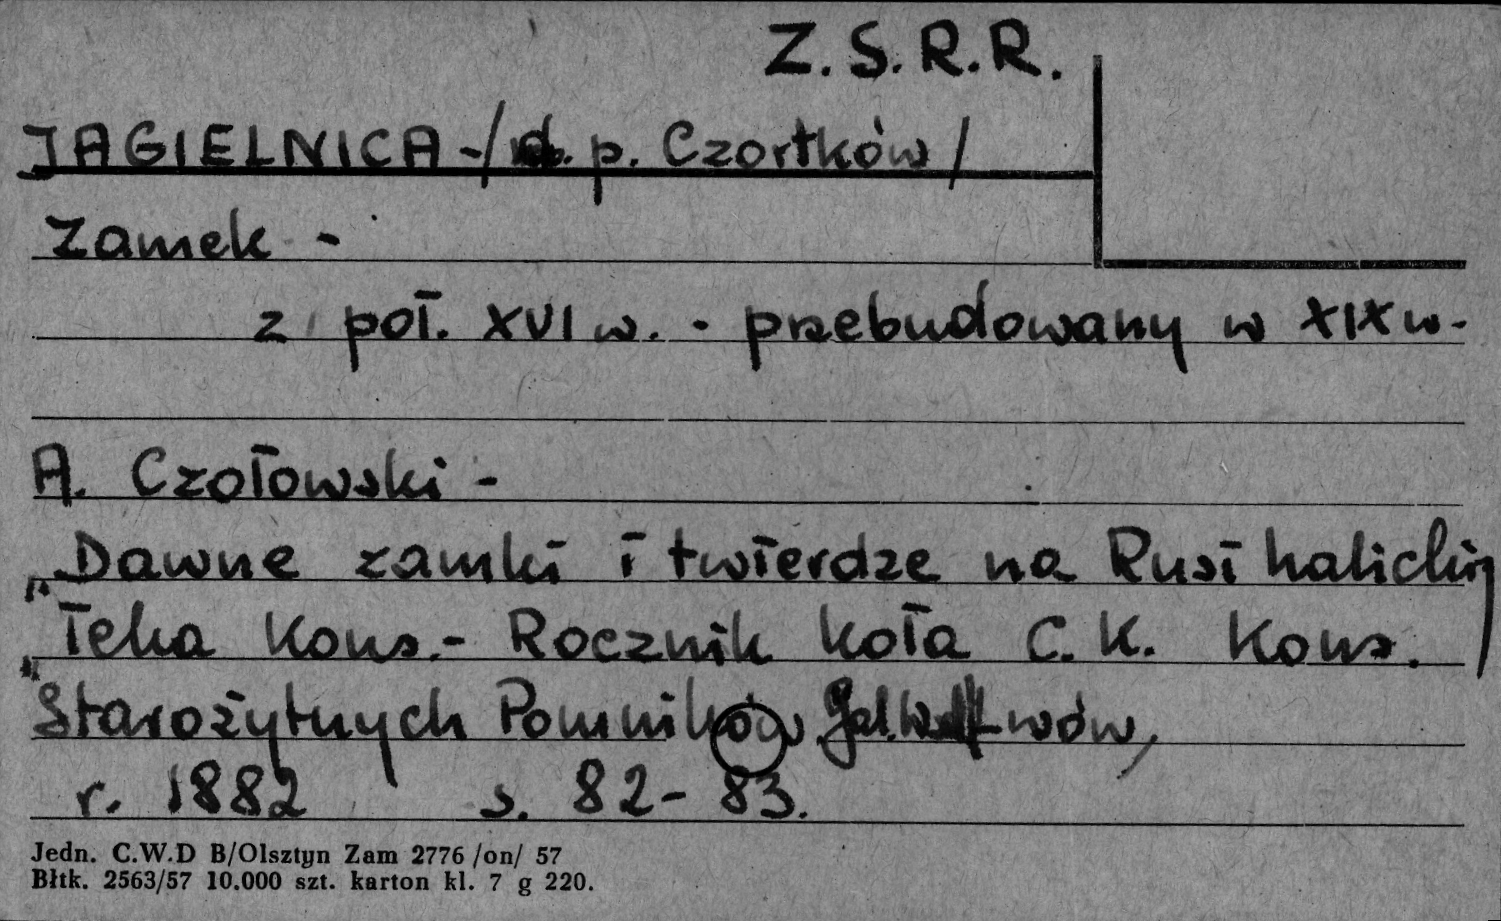 Z.S.R.R.
JAGIELNICA - / d. p. Czortków /
Zamek -
z poł. XVI w. - przebudowany w XIX w.
A. Czołowski -
Dawne zamki i twierdze na Rusi halickiej
"Teka Kons. - Rocznik koła C.K. Kons.
Starożytnych Pomników Gal. Lwów,
r. 1882 s. 82-83.
Jedn. C.W.D B/Olsztyn Zam 2776 /on/ 57
Błtk. 2563/57 10.000 szt. karton kl. 7 g 220.